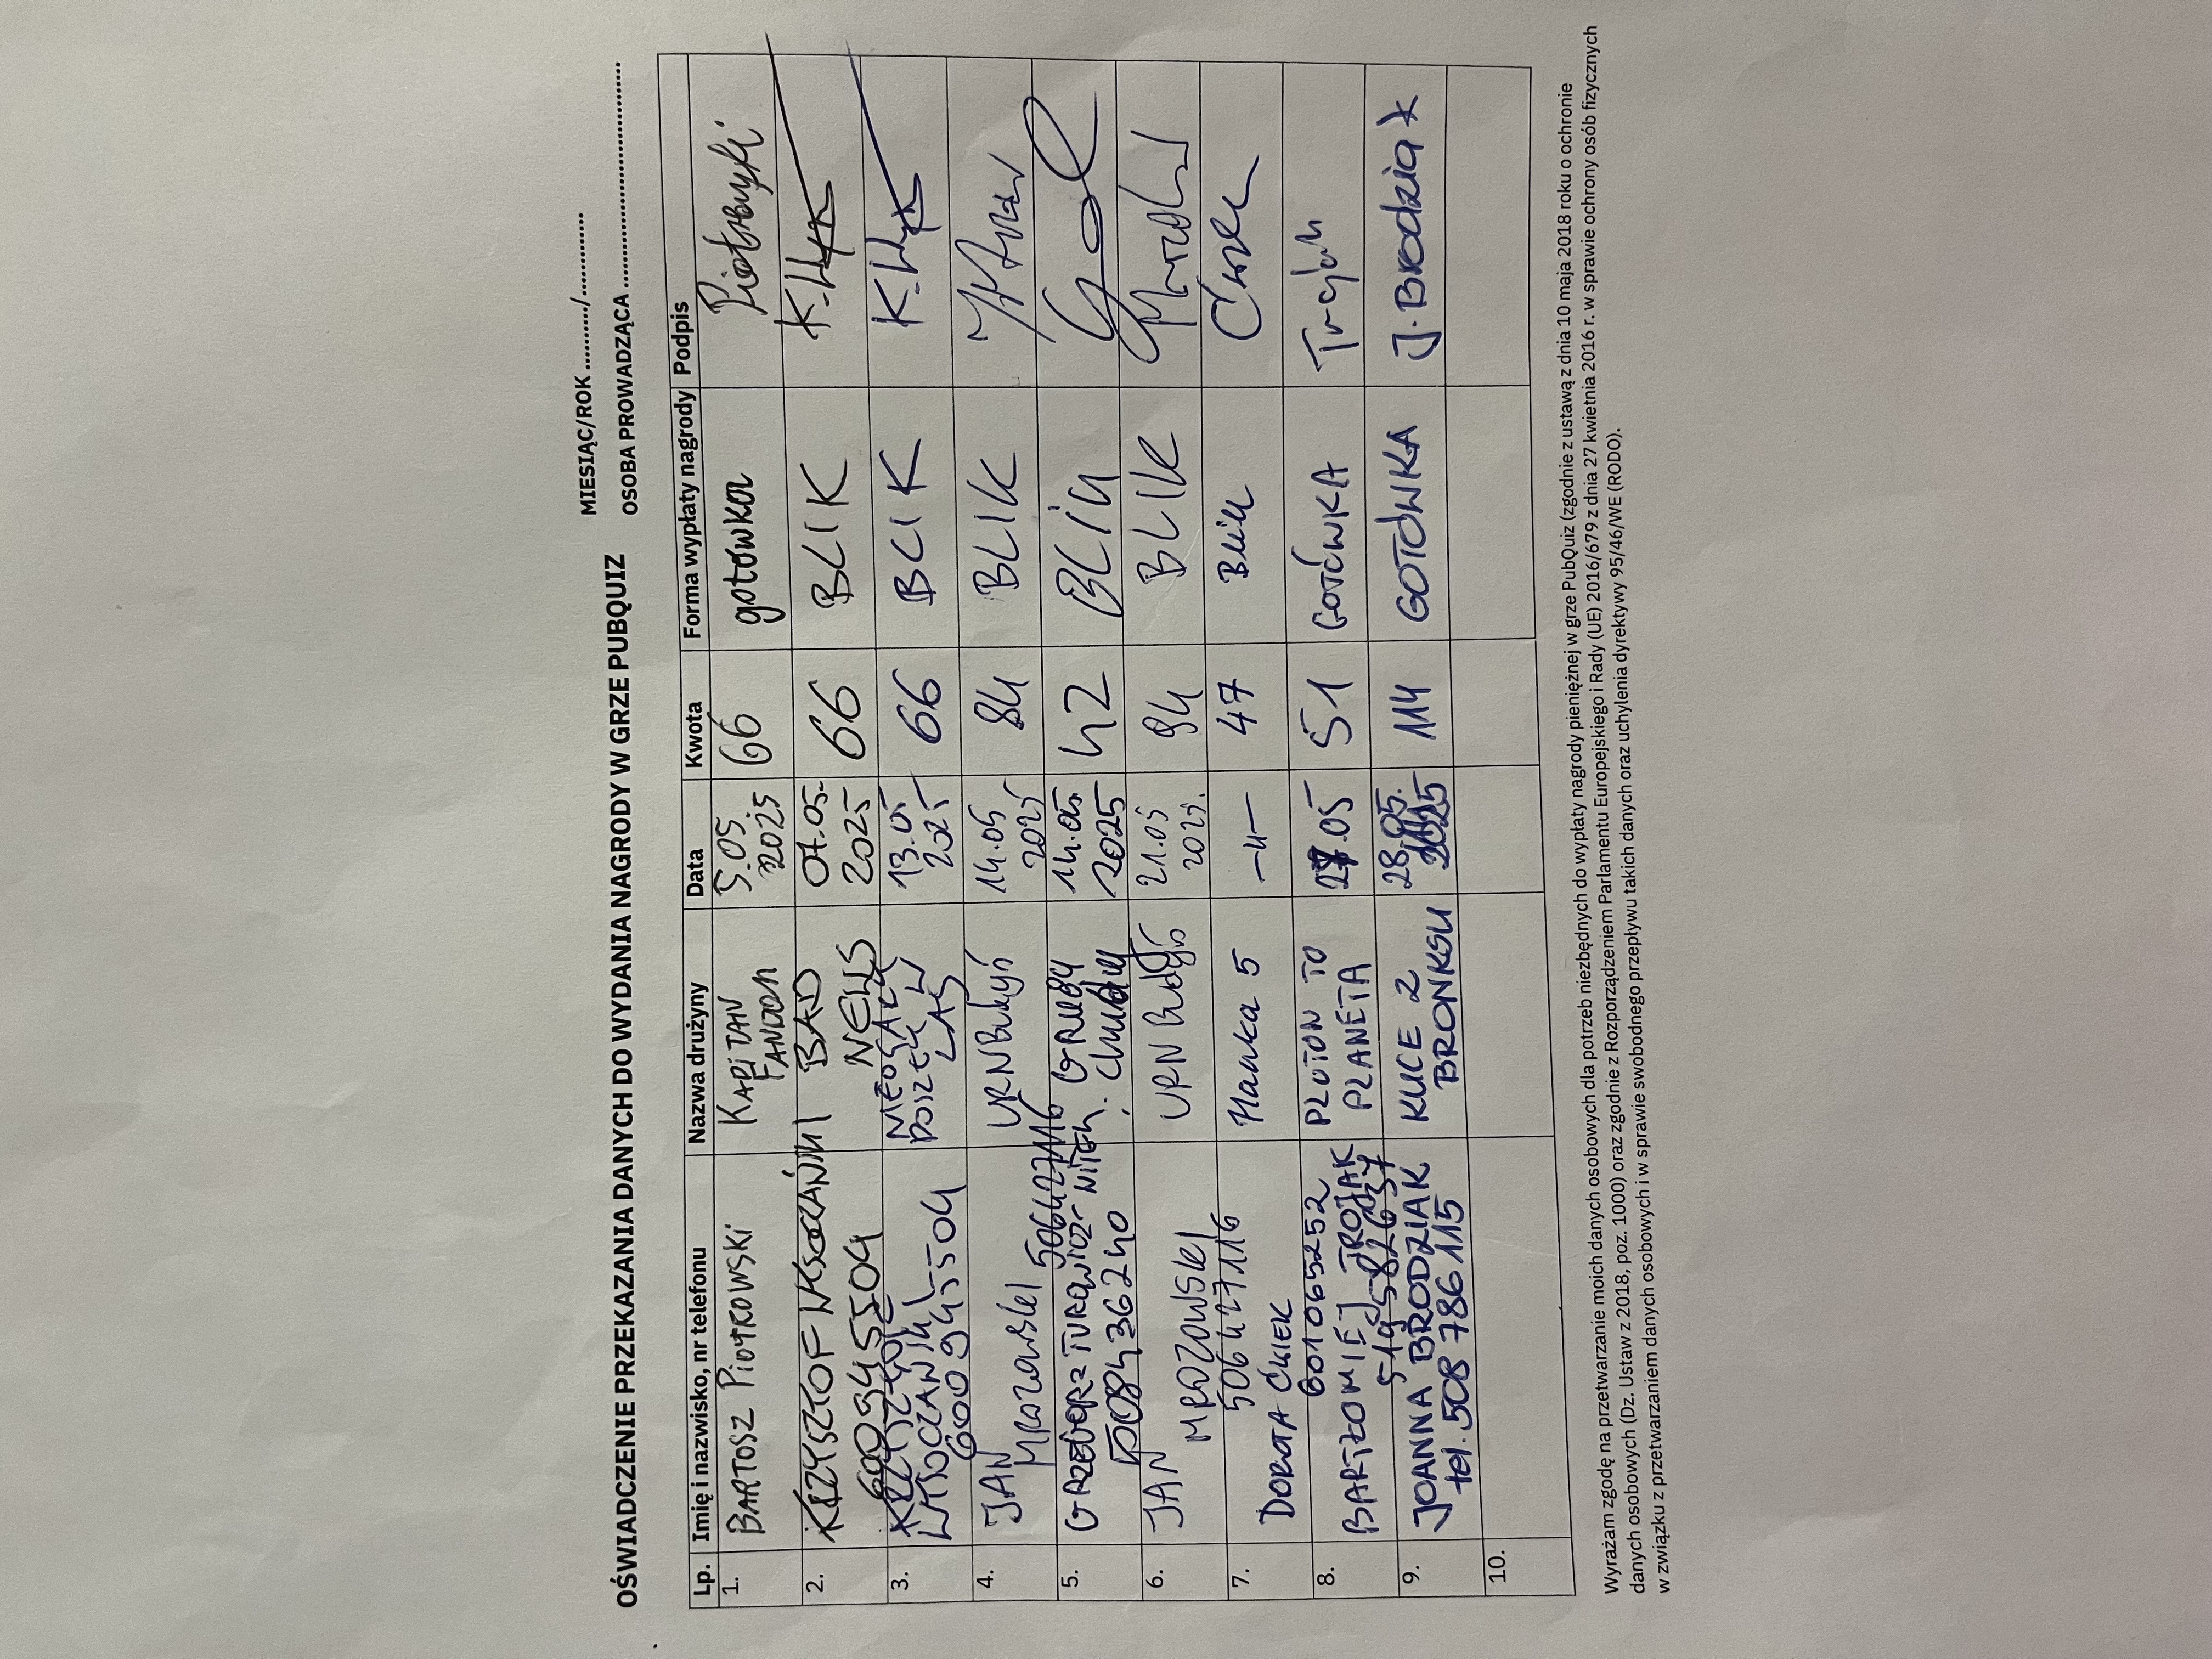 MIESIĄC/ROK ........../............
OŚWIADCZENIE PRZEKAZANIA DANYCH DO WYDANIA NAGRODY W GRZE PUBQUIZ OSOBA PROWADZĄCA ........................................
Lp. Imię i nazwisko, nr telefonu Nazwa drużyny Data Kwota Forma wypłaty nagrody Podpis
1. BARTOSZ PIOTROWSKI KAPITAN FANDOM 5.05 2025 66 gotówka
2. KRZYSZTOF 600945504 BAD NEWS 07.05. 2025 66 BLIK
3. 600945504 13.05 2025 66 BLIK
4. JAN MROZOWSKI 506427116 14.05 2025 84 BLIK
5. 508436240 GRUBY i CHUDY 14.05. 2025 42 BLIK
6. JAN MROZOWSKI 506427116 21.05 2025. 94 BLIK
7. DOROTA ĆWIEK 601065252 Hanka 5 —u— 47 Blik Ćwiek
8. BARTŁOMIEJ TROJAK 519582637 PLUTON TO PLANETA 27.05 51 GOTÓWKA Trojak
9. JOANNA BRODZIAK tel. 508 786 115 KUCE Z BRONKSU 28.05. 2025 114 GOTÓWKA J. Brodziak
10.
Wyrażam zgodę na przetwarzanie moich danych osobowych dla potrzeb niezbędnych do wypłaty nagrody pieniężnej w grze PubQuiz (zgodnie z ustawą z dnia 10 maja 2018 roku o ochronie
danych osobowych (Dz. Ustaw z 2018, poz. 1000) oraz zgodnie z Rozporządzeniem Parlamentu Europejskiego i Rady (UE) 2016/679 z dnia 27 kwietnia 2016 r. w sprawie ochrony osób fizycznych
w związku z przetwarzaniem danych osobowych i w sprawie swobodnego przepływu takich danych oraz uchylenia dyrektywy 95/46/WE (RODO).